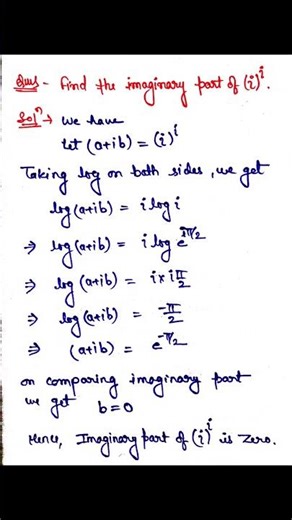 Ques - Find the imaginary part of (i)^i.
Sol^n → We have
Let (a+ib) = (i)^i
Taking log on both sides, we get
log(a+ib) = i log i
⇒ log(a+ib) = i log e^{iπ/2}
⇒ log(a+ib) = i × i π/2
⇒ log(a+ib) = -π/2
⇒ (a+ib) = e^{-π/2}
on comparing imaginary part
we get b=0
Hence, Imaginary part of (i)^i is zero.